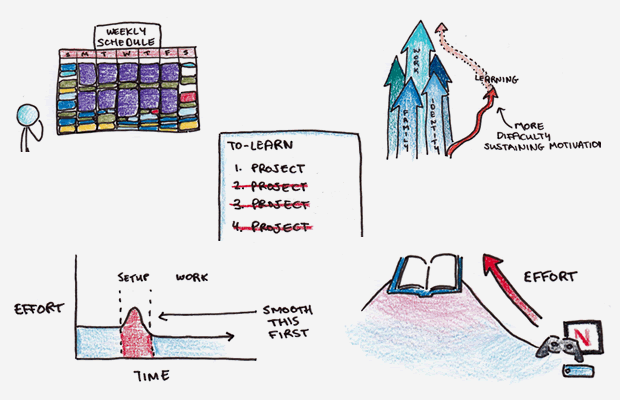 WEEKLY
SCHEDULE
S M T W T F S
WORK
FAMILY
IDENTITY
LEARNING
MORE
DIFFICULTY
SUSTAINING MOTIVATION
TO-LEARN
1. PROJECT
2. PROJECT
3. PROJECT
4. PROJECT
EFFORT
SETUP
WORK
SMOOTH
THIS
FIRST
TIME
EFFORT
N